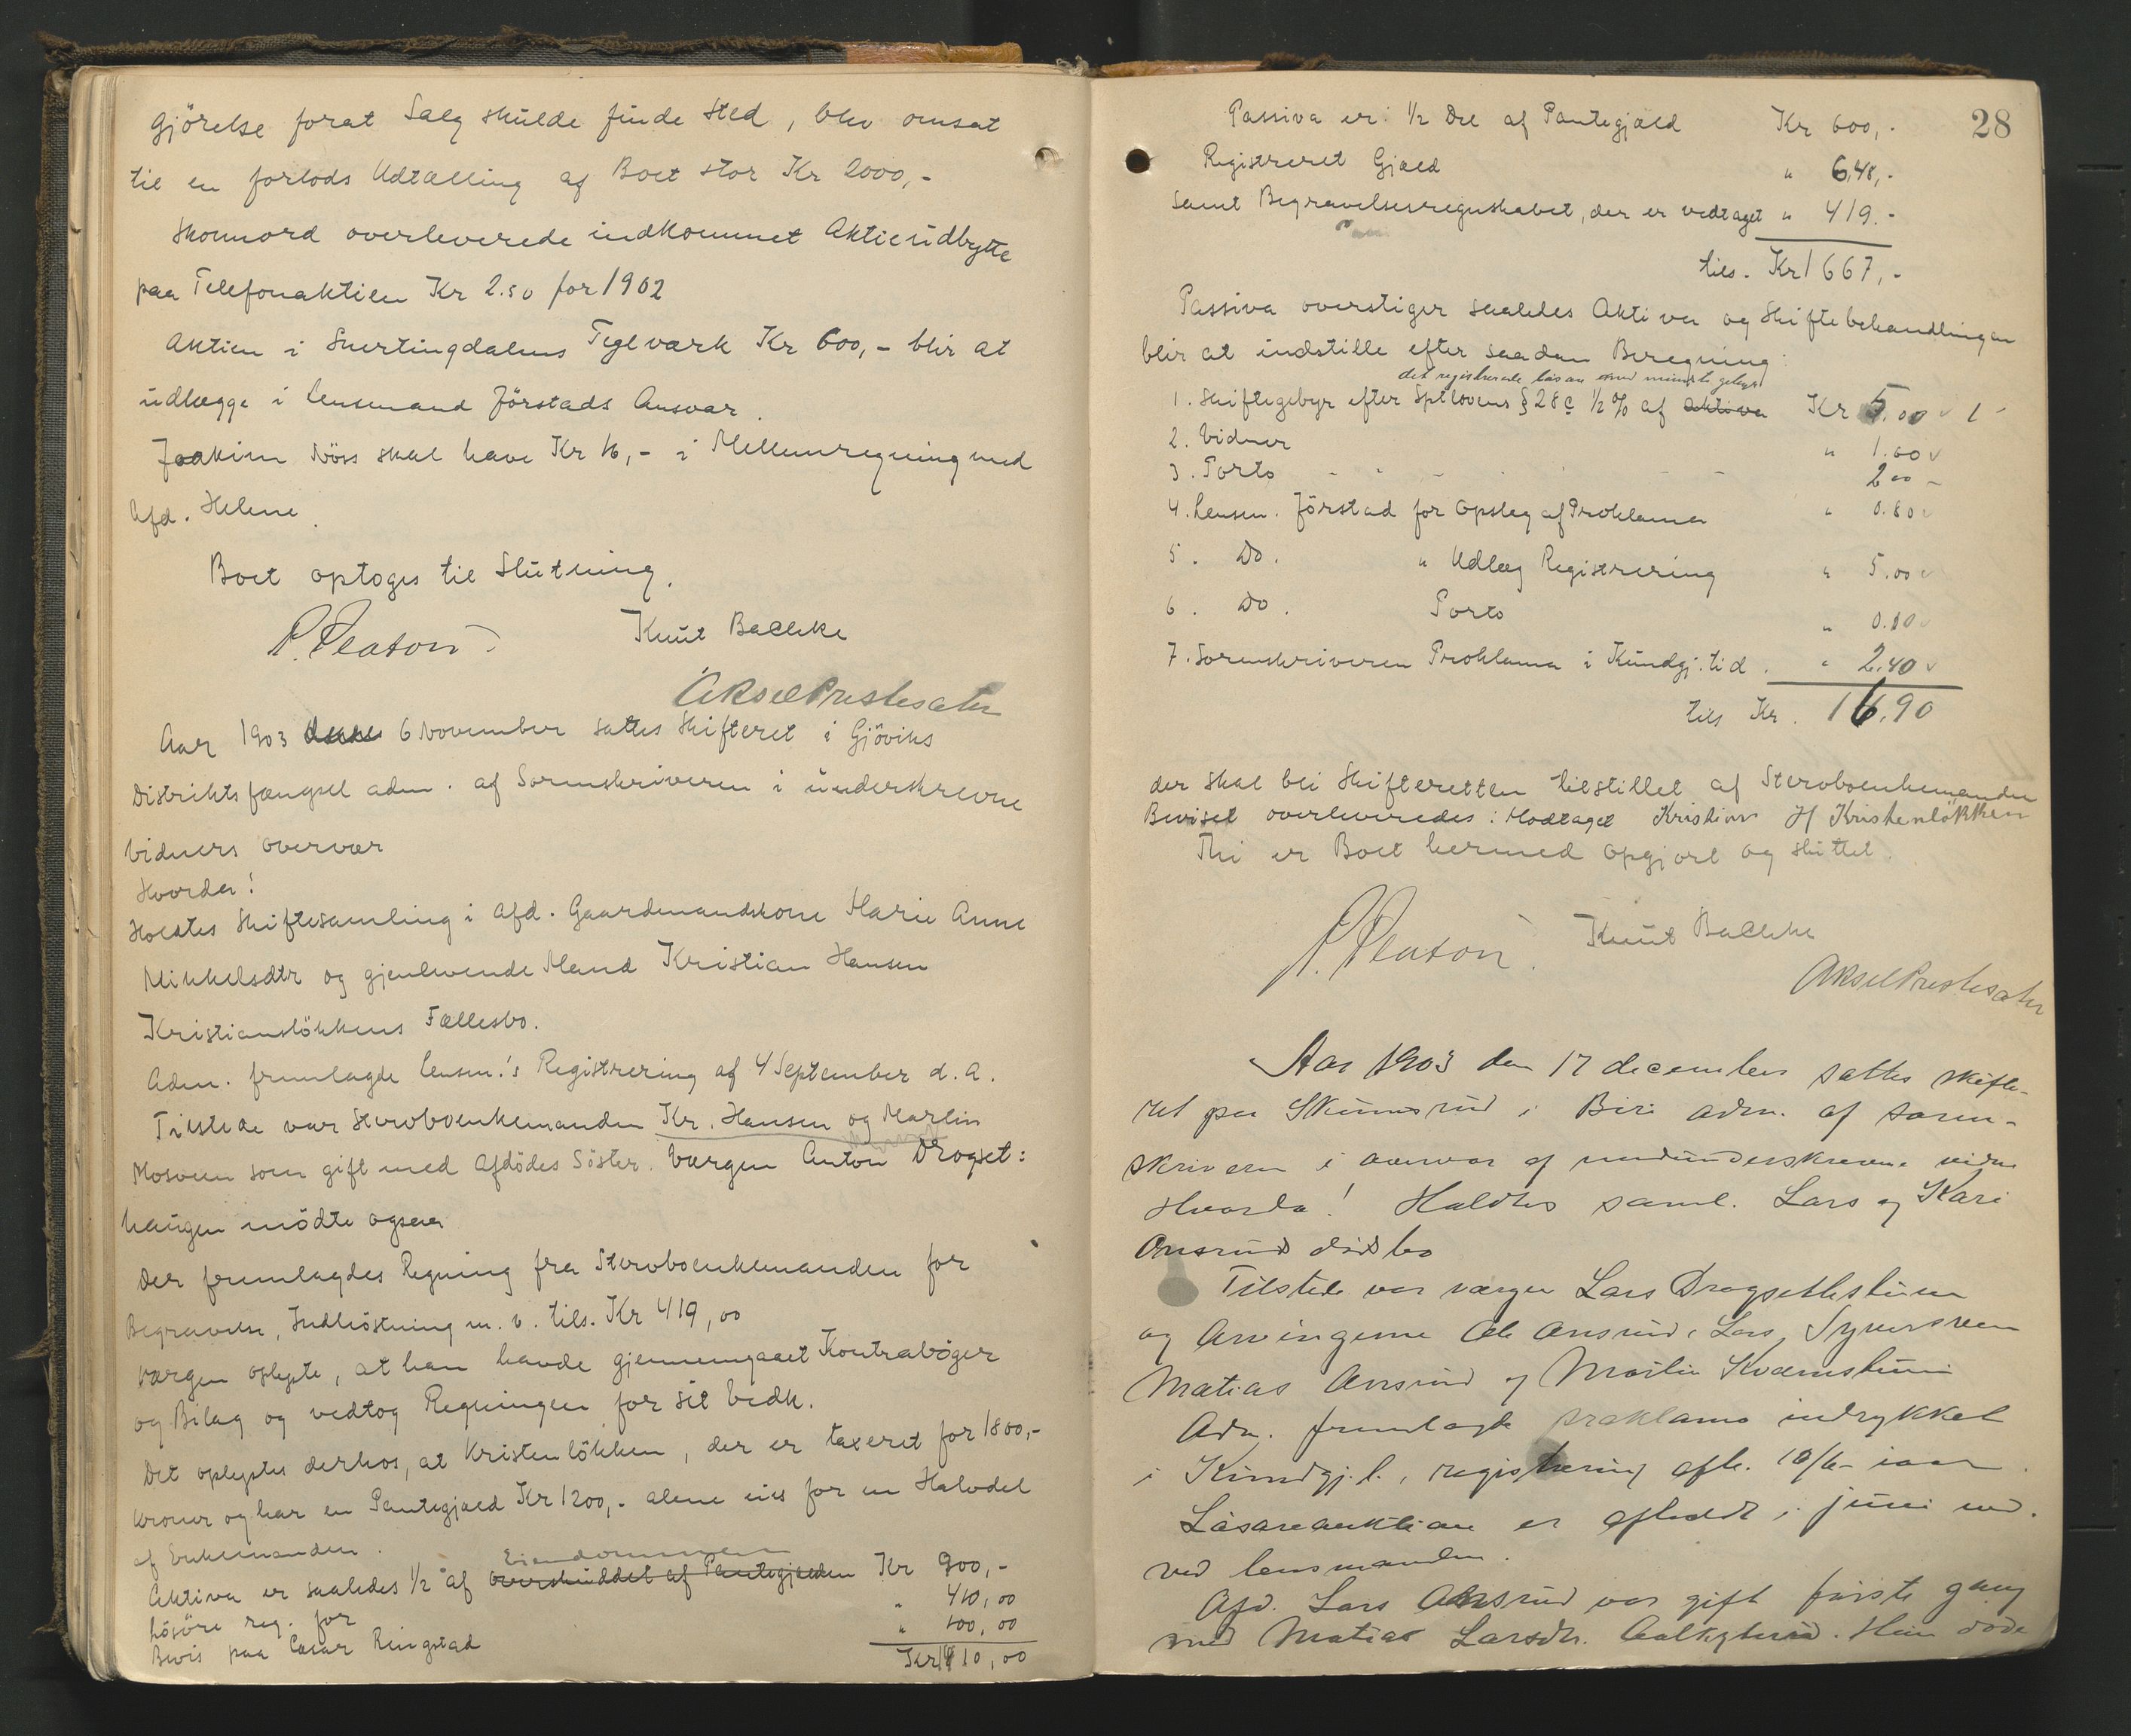 gjörelse forat Salg skulde finde Sted, blev omsat
til en forlods Udtælling af Boet stor Kr 2000,-
overleverede indkommet Aktieudbytte
paa Telefonaktien Kr 2.50 for 1902
Aktien i Snertingdalens Teglværk Kr 600,- blir at
udlægge i Lensmand Jörstads Ansvar.
Joakim Nöss skal have Kr 16,- i Mellemregning med
Afd. Helene.
Boet optoges til Slutning.
P. Platou Knut Bachke
Aksel Prestesæter
Aar 1903 6 November sattes Skifteret i Gjöviks
Distriktsfængsel adm. af Sorenskriveren i underskrevne
Vidners overvær
Hvorda!
Holdtes Skiftesamling i Afd. Gaardmandskone Marie Anne
Mikkelsdtr og gjenlevende Mand Kristian Hansen
Kristianslökkens Fællesbo.
Adm. fremlagde Lensm.'s Registrering af 4 September d.A.
Tilstede var Stervboenkemanden Kr. Hansen og Martin
Mosveen som gift med Afdödes Söster. Værgen Anton Drogset:
haugen mödte ogsaa
Der fremlagdes Regning fra Stervboenkemanden for
Begravelse, Indhöstning m. v. tils. Kr 419,00
Værgen oplyste, at han havde gjennemgaaet Kontraböger
og Bilag og vedtog Regningen for sit Vedk.
Det oplystes derhos, at Kristenlökken, der er taxeret for 1800,-
Kroner og har en Pantegjæld Kr 1200,- alene eies for en Halvdel
af Enkemanden.
Eiendommen
Aktiva er saaledes 1/2 af overskuddet af Pantegjælden Kr 900,-
Lösöre reg. for " 410,00
Bevis paa Cæsar Ringstad " 100,00
Kr 1410,00
28
Passiva er: 1/2 Del af Pantegjæld Kr 600,-
Registreret Gjæld " 648,-
samt Begravelsesregnskabet, der er vedtaget " 419.-
tils. Kr 1667,-
Passiva overstiger saaledes Aktiva og Skiftebehandlingen
blir at indstille efter saadan Beregning:
det registrerede lösöre med mindste gebyr
1. Skiftegebyr efter Sptlovens § 28 c 1/2 % af Aktiva Kr 5.00
2. Vidner " 1.00
3. Porto 2 00 -
4. Lensm. Jörstad for Opslag af Proklama " 0.80
5. Do. " Udlæg Registrering " 5.00
6. Do. Porto "
7. Sorenskriveren Proklama i Kundgj.tid. " 2.40
tils Kr. 16,90
der skal bli Skifteretten tilstillet af Stervboenkemanden
Beviset overleveredes: Modtaget Kristian H Kristenløkken
Thi er Boet hermed opgjort og sluttet.
P. Platou. Knut Bachke
Aksel Prestesæter
Aar 1903 den 17 december sattes skifte-
ret paa Skumsrud i Biri adm. af soren-
skriveren i overvær af medunderskrevne vidne
Hvorda! Holdtes saml. Lars og Kari
Onsrud dødsbo
Tilstede var værgen Lars Drogsethstuen
og Arvingerne Ole Onsrud, Lars Syversveen
Matias Onsrud og Martin Kvernstuen
Adm. fremlagde proklama indrykket
i Kundgj.t., registrering afh. 10/6 iaar.
Løsøreauktion er afholdt i juni md.
ved lensmanden.
Afd. Lars Onsrud var gift første gang
med Matias Larsdtr. Hun døde